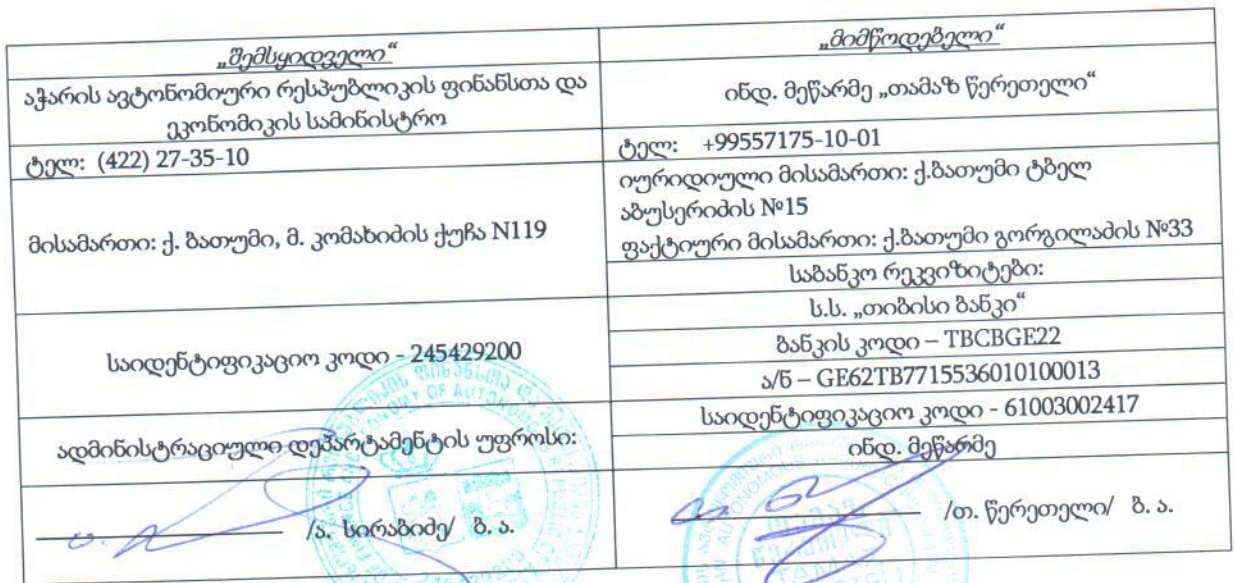 „შემსყიდველი“
აჭარის ავტონომიური რესპუბლიკის ფინანსთა და
ეკონომიკის სამინისტრო
ტელ: (422) 27-35-10
მისამართი: ქ. ბათუმი, მ. კომახიძის ქუჩა N119
საიდენტიფიკაციო კოდი - 245429200
ადმინისტრაციული დეპარტამენტის უფროსი:
/ა. სირაბიძე/ ბ. ა.
„მიმწოდებელი“
ინდ. მეწარმე „თამაზ წერეთელი“
ტელ: +99557175-10-01
იურიდიული მისამართი: ქ.ბათუმი ტბელ
აბუსერიძის №15
ფაქტიური მისამართი: ქ.ბათუმი გორგილაძის №33
საბანკო რეკვიზიტები:
ს.ს. „თიბისი ბანკი“
ბანკის კოდი – TBCBGE22
ა/ნ – GE62TB7715536010100013
საიდენტიფიკაციო კოდი - 61003002417
ინდ. მეწარმე
/თ. წერეთელი/ ბ. ა.